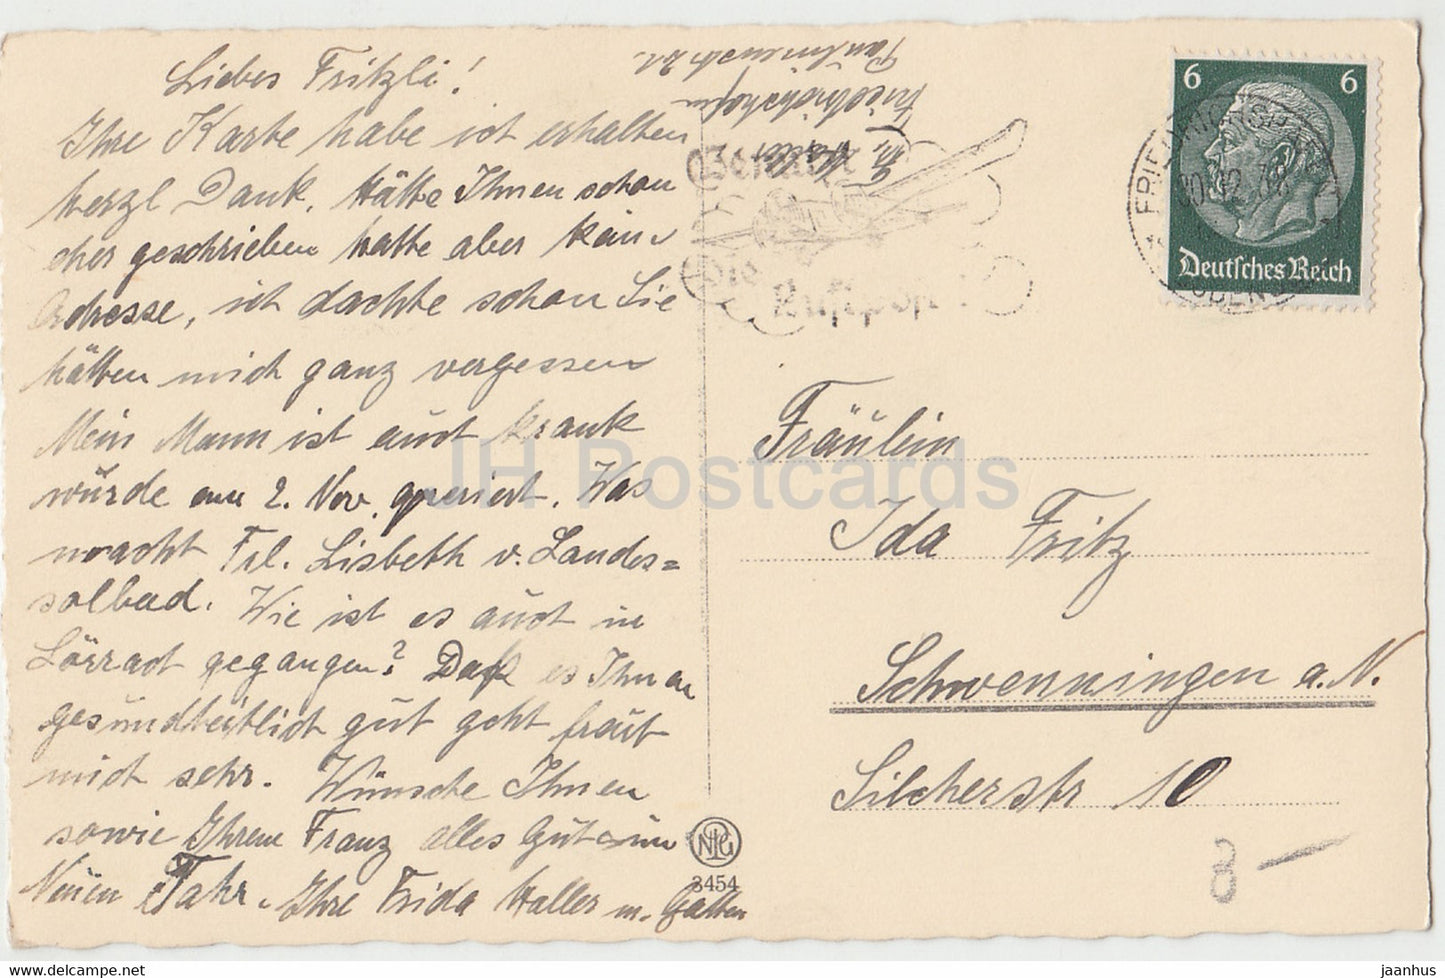 Liebes Fritzli!
Ihre Karte habe ich erhalten
herzl Dank. Hätte Ihnen schon
eher geschrieben hatte aber kein
Adresse, ich dachte schon Sie
hätten mich ganz vergessen
Mein Mann ist auch krank
würde am 2. Nov. operiert. Was
macht Frl. Lisbeth v. Landes=
solbad. Wie ist es auch in
Lörrach gegangen? Daß es Ihnen
gesundheitlich gut geht freut
mich sehr. Wünsche Ihnen
sowie Ihrem Franz alles Gute im
Neuen Jahr. Ihre Frida Haller m. Gatten
Haller
Friedrichshafen
Benutzt
Die
Luftpost
6 6
Deutsches Reich
FRIEDRICHSHAFEN
Fräulein
Ida Fritz
Schwenningen a. N.
Silcherstr 10
8 —
NPG
3454
JH Postcards
jaanhus jaanhus.com